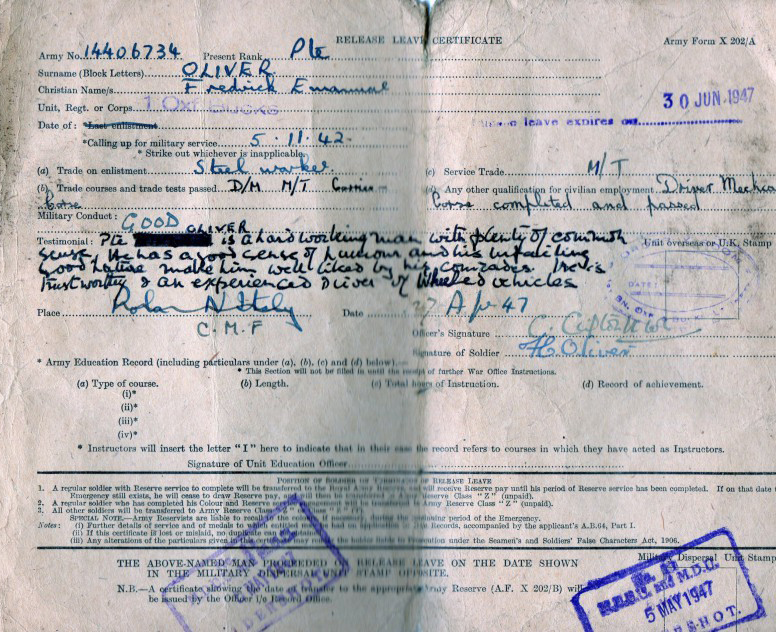 RELEASE LEAVE CERTIFICATE
Army Form X 202/A
Army No. 14406734 Present Rank Pte
Surname (Block Letters) OLIVER
Christian Name/s Fredrick
Unit, Regt. or Corps 1 Oxf BUCKS
30 JUN 1947
leave expires on
Date of : *Last enlistment
*Calling up for military service 5.11.42.
* Strike out whichever is inapplicable.
(a) Trade on enlistment Steel worker (c) Service Trade M/T
(b) Trade courses and trade tests passed D/M M/T Carrier (d) Any other qualification for civilian employment Driver Mechanic
Corse Corse completed and passed
Military Conduct : GOOD
OLIVER
Testimonial : Pte is a hard working man with plenty of common
Unit overseas or U.K. Stamp
sense, He has a good sense of humour and his unfailing
good nature make him well liked by his comrades. He is
Trustworthy & an experienced Driver of Wheeled vehicles
Place Italy Date 27 Apr 47
C.M.F
Officer's Signature
Signature of Soldier F.E. Oliver
* Army Education Record (including particulars under (a), (b), (c) and (d) below).—
* This Section will not be filled in until the receipt of further War Office Instructions.
(a) Type of course. (b) Length. (c) Total hours of Instruction. (d) Record of achievement.
(i)*
(ii)*
(iii)*
(iv)*
* Instructors will insert the letter "I" here to indicate that in their case the record refers to courses in which they have acted as Instructors.
Signature of Unit Education Officer
POSITION OF SOLDIER ON TERMINATION OF RELEASE LEAVE
1. A regular soldier with Reserve service to complete will be transferred to the Royal Army Reserve, and will receive Reserve pay until his period of Reserve service has been completed. If on that date
Emergency still exists, he will cease to draw Reserve pay, and will then be transferred to Army Reserve Class "Z" (unpaid).
2. A regular soldier who has completed his Colour and Reserve will be transferred to Army Reserve Class "Z" (unpaid).
3. All other soldiers will be transferred to Army Reserve Class
SPECIAL NOTE.—Army Reservists are liable to recall if necessary, during the period of the Emergency.
Notes: (i) Further details of service and of medals Records, accompanied by the applicant's A.B.64, Part I.
(ii) If this certificate is lost or mislaid, no duplicate can
(iii) Any alterations of the particulars given in this certificate may render the holder liable to prosecution under the Seamen's and Soldiers' False Characters Act, 1906.
THE ABOVE-NAMED MAN PROCEEDED ON RELEASE LEAVE ON THE DATE SHOWN
IN THE MILITARY DISPERSAL STAMP OPPOSITE.
Military Dispersal Unit Stamp
N.B.—A certificate showing the date of transfer to the appropriate Army Reserve (A.F. X 202/B) will
be issued by the Officer i/c Record Office.
5 MAY 1947